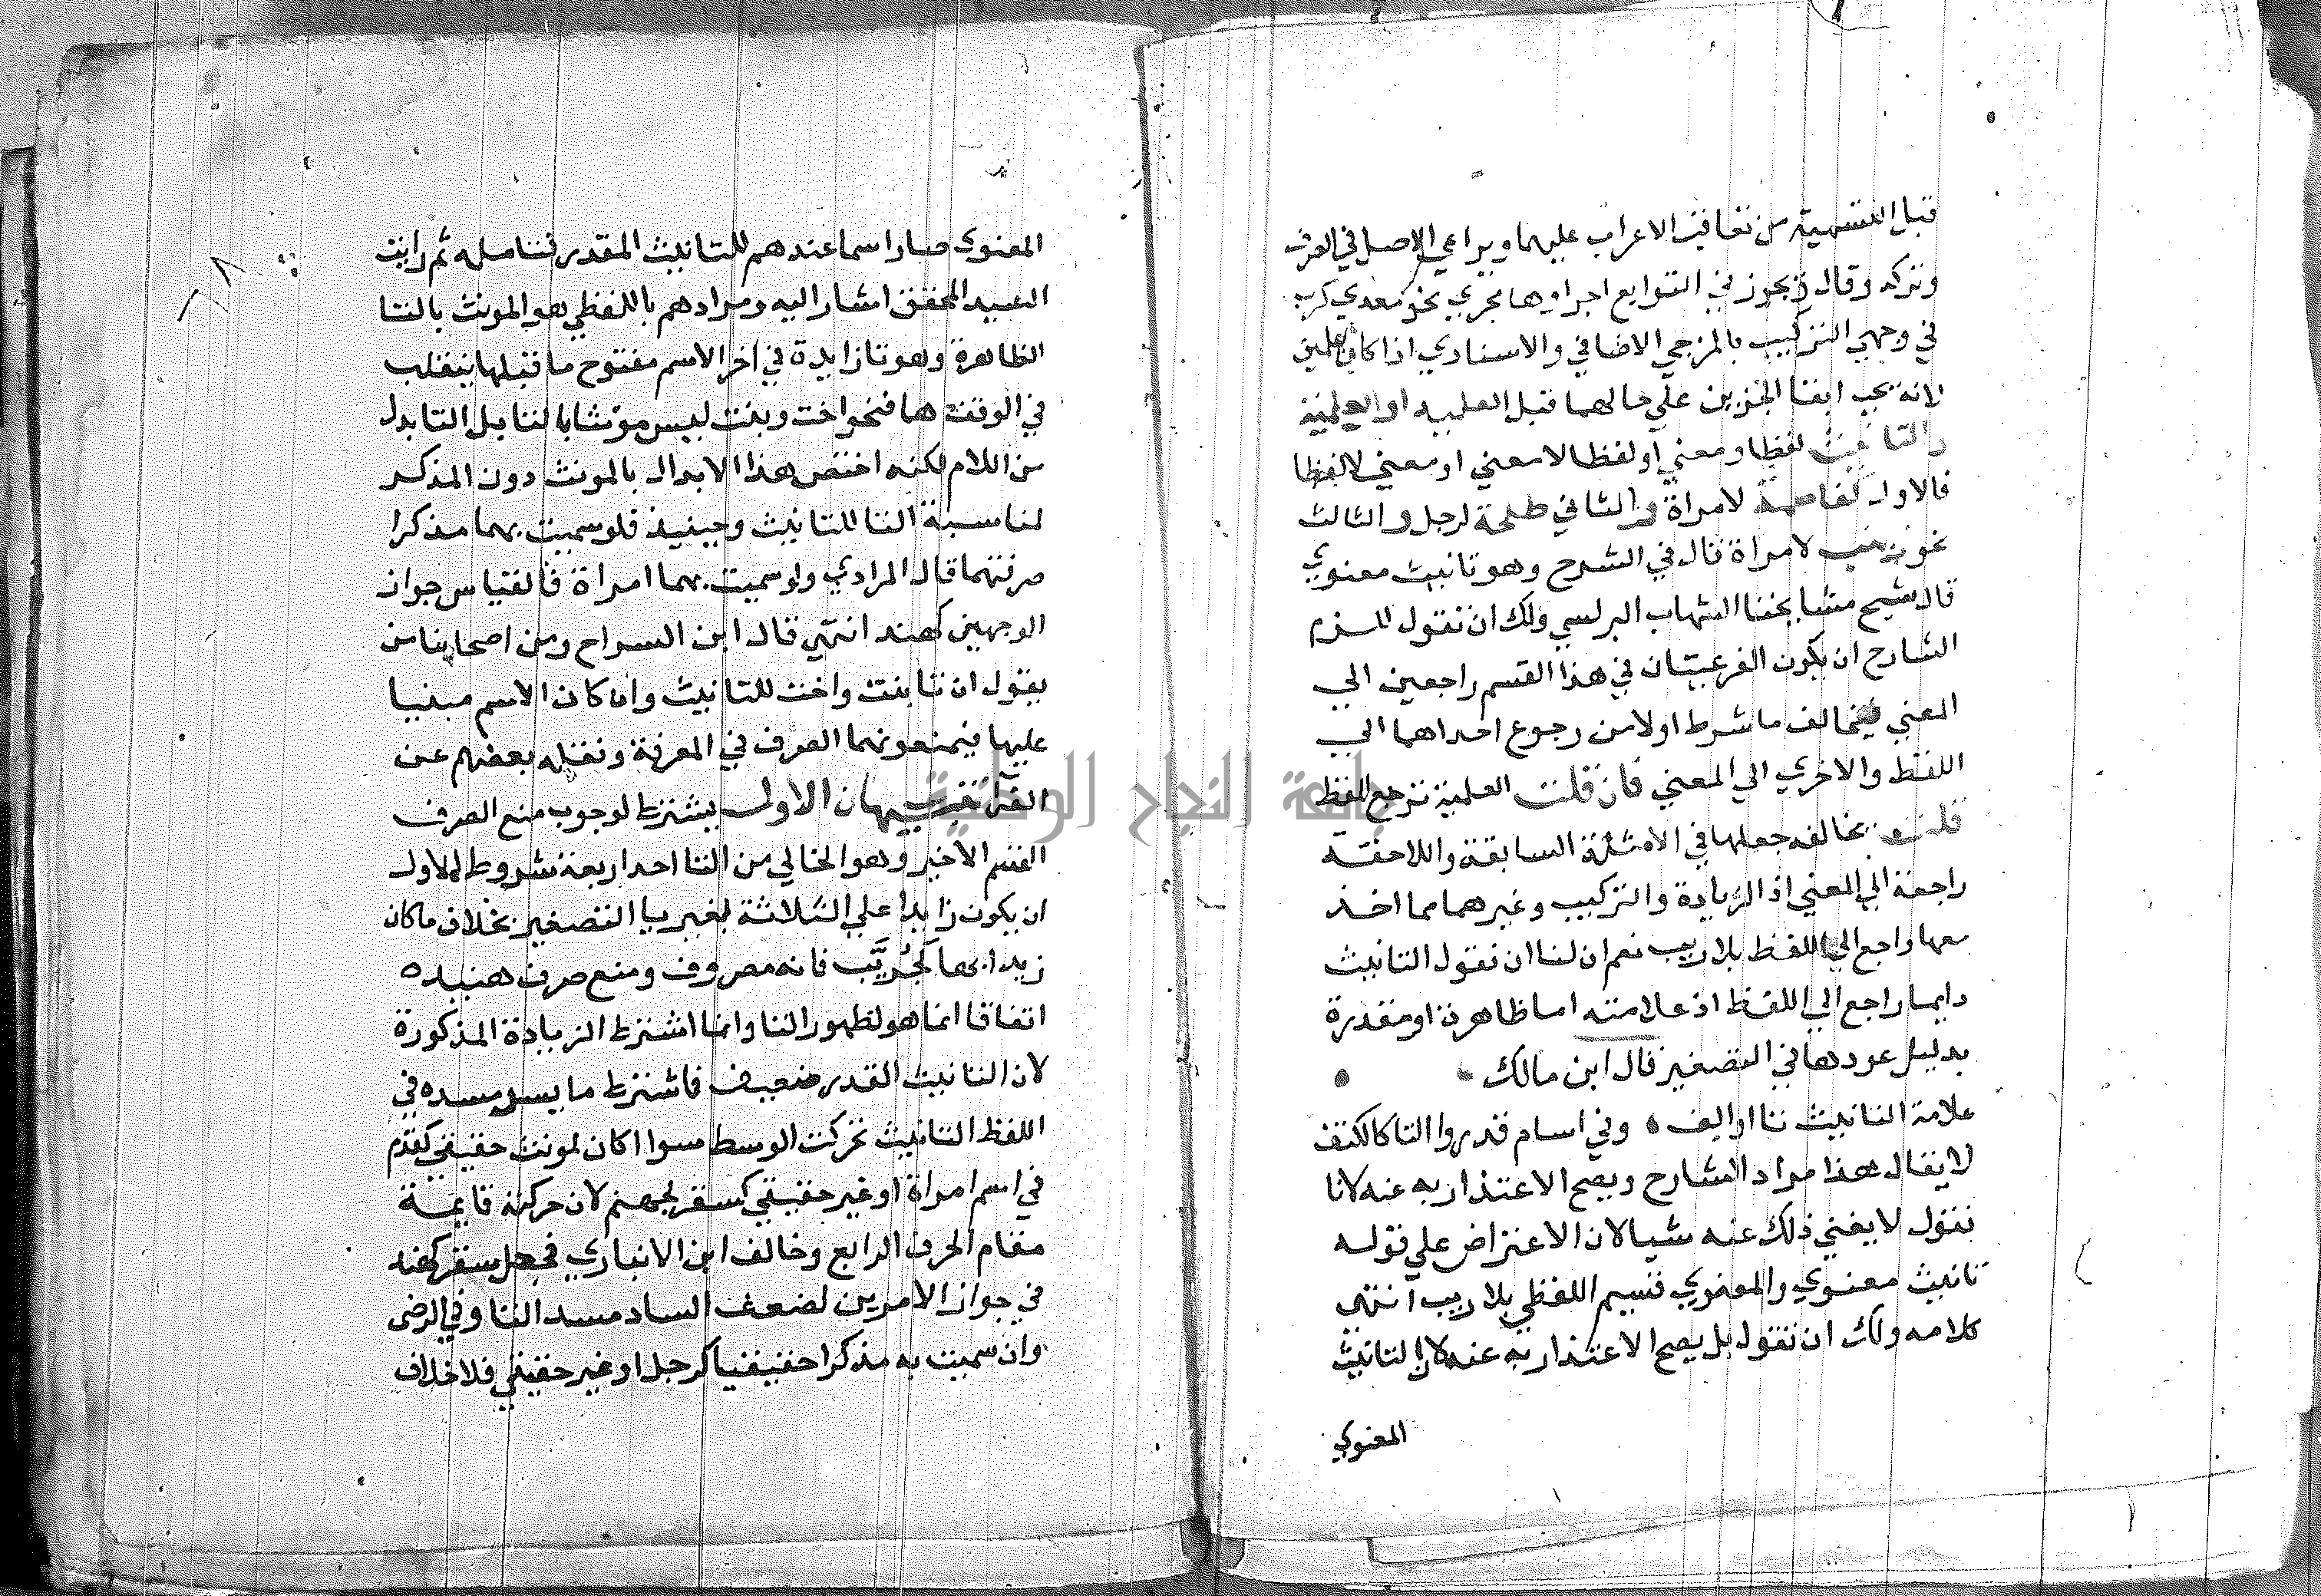 قبل التسمية من تعاقب الاعراب عليهما ويراعي الاصل في الصرف
وتركه وقال يجوز في التوابع اجراوها مجري نحو معدي كرب
في وجهي التركيب بالمزجي الاضافي والاسنادي اذا كان علمين
لانه يجب ابقا الجزين علي حالهما قبل العلمية او العلمية
والتانيث لفظا ومعني او لفظا لا معني او معني لا لفظا
فالاول كفاطمة لامراة والثاني طلحة لرجل والثالث
نحو زينب لامراة قال في الشرح وهو تانيث معنوي
قال شيخ مشايخنا الشهاب البرلسي ولك ان تقول للزم
الشارح ان يكون الفرعيتان في هذا القسم راجعين الي
المعني فيخالف ما شرط اولا من رجوع احداهما الي
اللفظ والاخري الي المعني فان قلت العلمية ترجع للفظ
قلت يخالفه جعلها في الامثلة السابقة واللاحقة
راجعة الي المعني اذ الزيادة والتركيب وغيرهما مما اخذ
معها راجع الي اللفظ بلا ريب نعم ان لنا ان نقول التانيث
دايما راجع الي اللفظ اذ علامته اما ظاهرة او مقدرة
بدليل عودها في التصغير قال ابن مالك
علامة التانيث تا او الف ه وفي اسام قدروا التا كالكتف
لا يقال هذا مراد الشارح ويصح الاعتذار به عنه لانا
نقول لا يغني ذلك عنه شيا لان الاعتراض علي قوله
تانيث معنوي والمعنوي قسيم اللفظي بلا ريب انتهي
كلامه ولك ان تقول بل يصح الاعتذار به عنه لان التانيث
المعنوي
المعنوي صار اسما عندهم للتانيث المقدر فتامله ثم رايت
السيد المحقق اشار اليه ومرادهم باللفظي هو المونث بالتا
الظاهرة وهو تا زايدة في اخر الاسم مفتوح ما قبلها ينقلب
في الوقف ها فنحو اخت وبنت ليس مونثا بالتا بل التا بدل
من اللام لكنه اختص هذا الابدال بالمونث دون المذكر
لمناسبة التا للتانيث وحينيذ فلو سميت بهما مذكرا
صرفتهما قال المرادي ولو سميت بهما امراة فالقياس جواز
الوجهين كهند انتهي قال ابن السراج ومن اصحابنا من
يقول ان تا بنت واخت للتانيث وان كان الاسم مبنيا
عليها فيمنعونهما الصرف في المعرفة ونقله بعضهم عن
الفرا تنبيهان الاول يشترط لوجوب منع الصرف
القسم الاخير وهو الخالي من التا احد اربعة شروط الاول
ان يكون زايدا علي الثلاثة بغير يا التصغير بخلاف ما كان
زيدا بها كحُرَيَّب فانه مصروف ومنع صرف هنيدة
اتفاقا انما هو لظهور التا وانما اشترط الزيادة المذكورة
لان التانيث المقدر ضعيف فاشترط ما يسد مسده في
اللفظ الثاني تحرك الوسط سوا اكان لمونث حقيقي كقدم
في اسم امراة او غير حقيقي كسقر لجهنم لان حركته قايمة
مقام الحرف الرابع وخالف ابن الانباري فجعل سقر كهند
في جواز الامرين لضعف الساد مسد التا وفي الرضي
وان سميت به مذكرا حقيقيا كرجل او غير حقيقي فلا خلاف
جامعة النجاح الوطنية